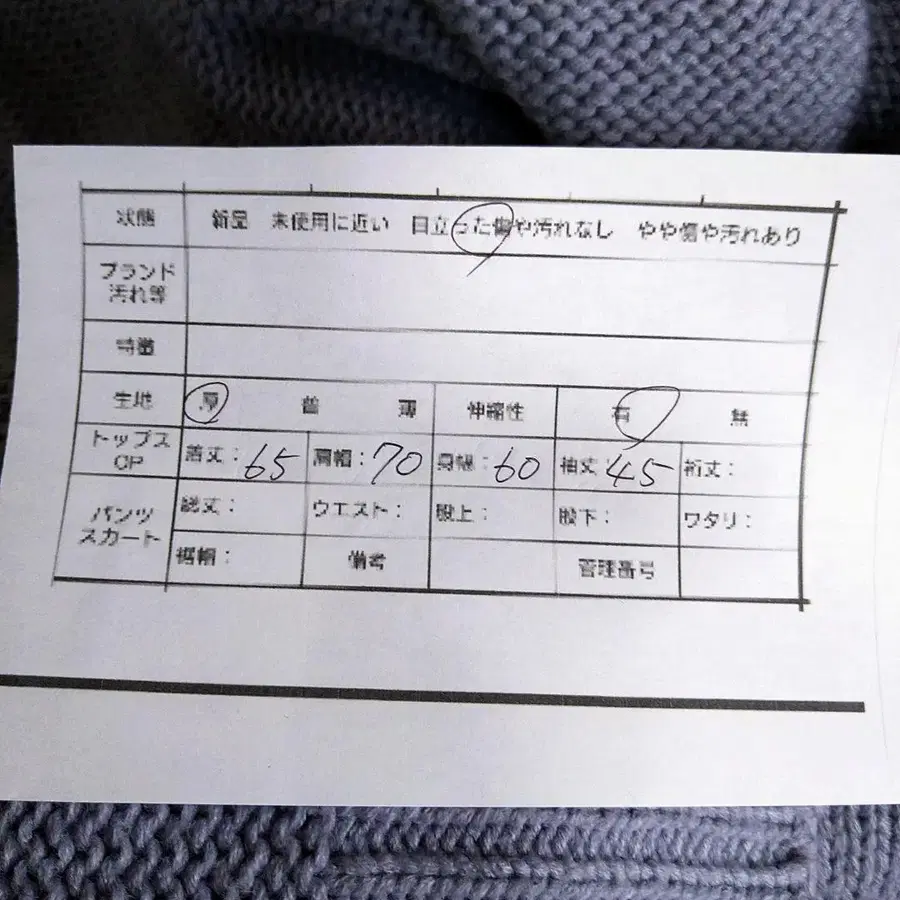 状態 新品 未使用に近い 目立った傷や汚れなし やや傷や汚れあり
ブランド
汚れ等
特徴
生地 厚 普 薄 伸縮性 有 無
トップス
OP
着丈：65 肩幅：70 身幅：60 袖丈：45 裄丈：
パンツ
スカート
総丈： ウエスト： 股上：股下： ワタリ：
裾幅： 備考 管理番号